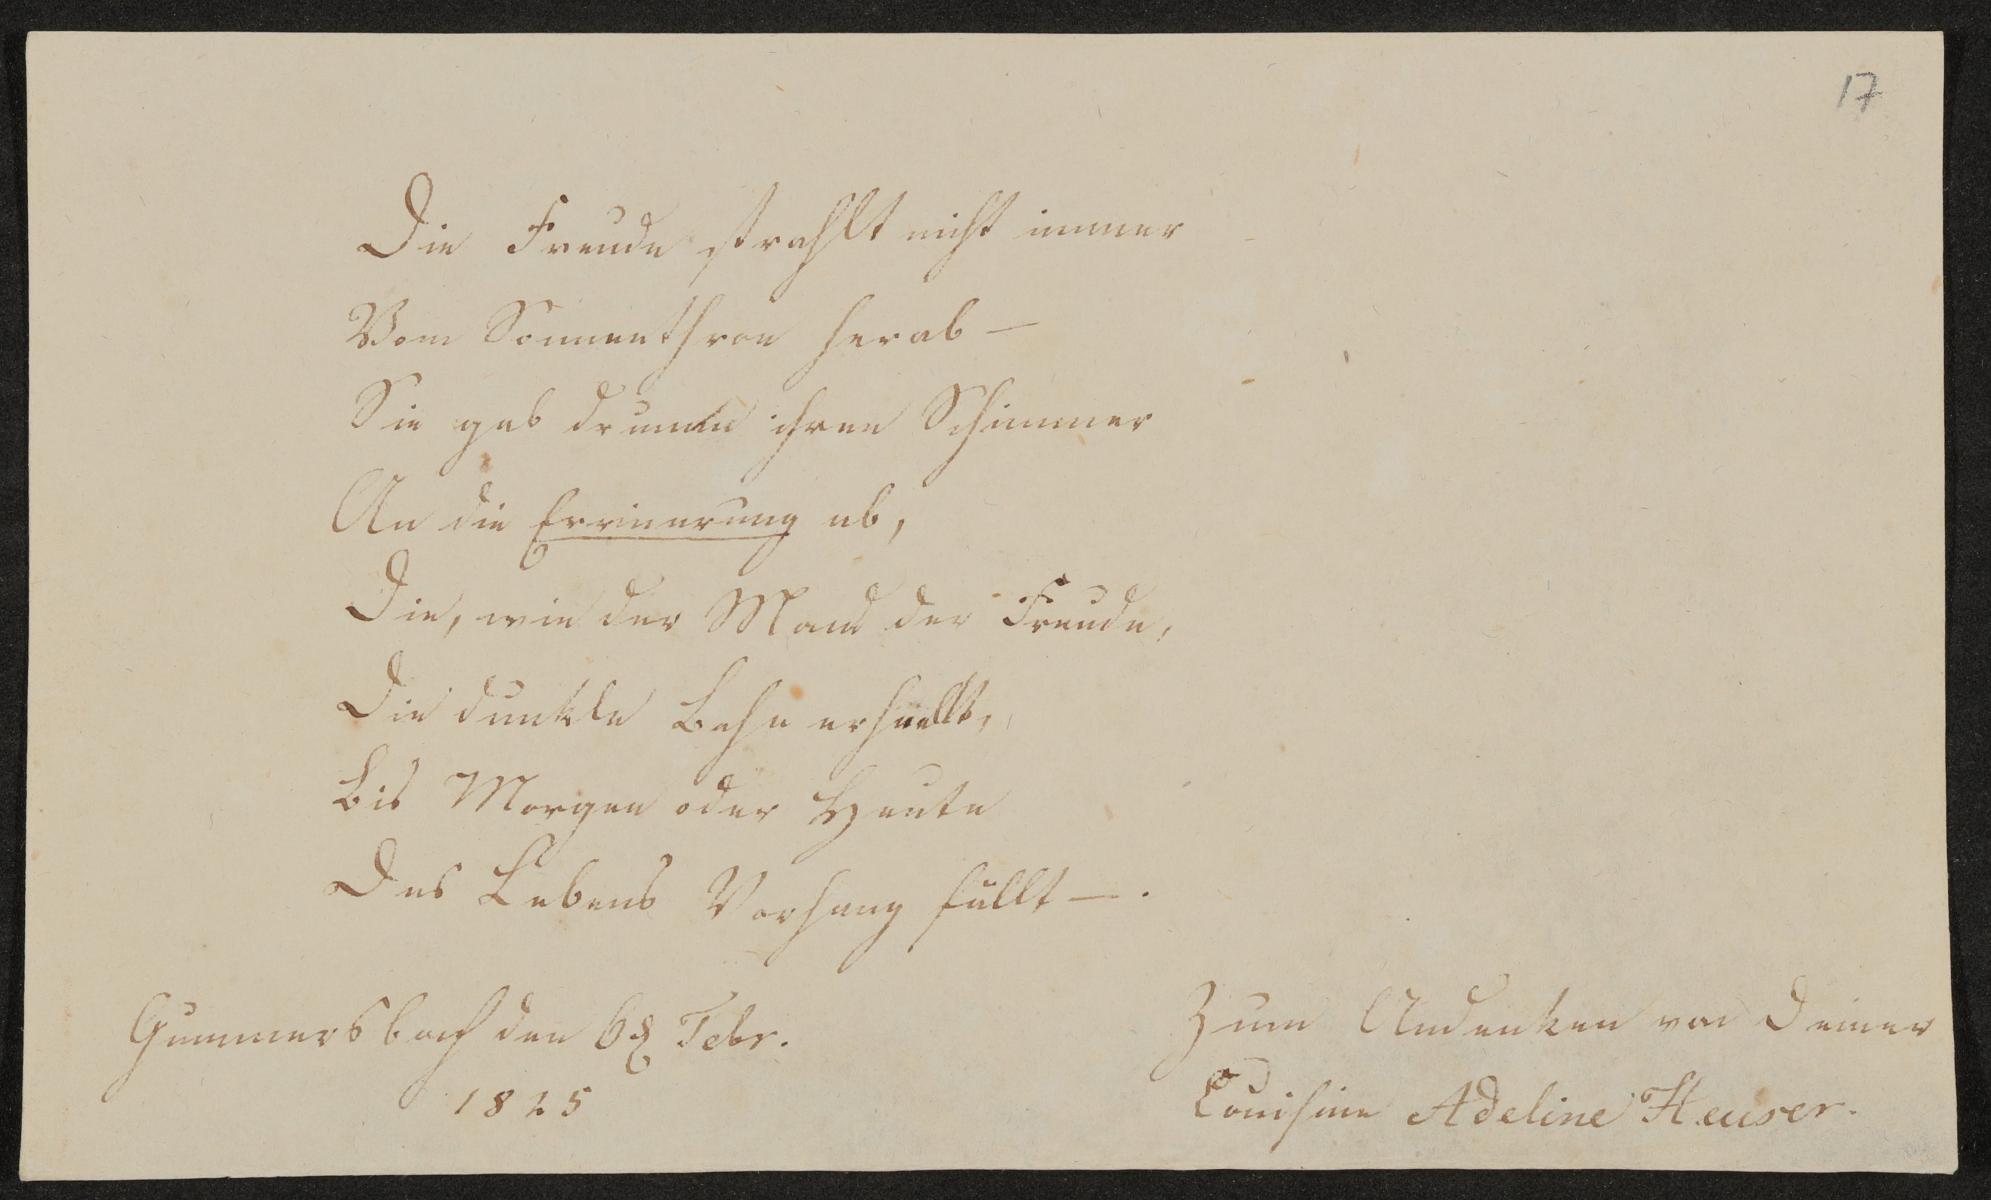 17
Die Freude strahlt nicht immer
Vom Sonnenthron herab —
Sie gab drumm ihren Schimmer
An die Errinerung ab,
Die, wie der Mond der Freude,
Die dunkle Bahn erhellt,
Bis Morgen oder Heute
Des Lebens Vorhang fällt — .
Gummersbach den 6ten Febr.
1825
Zum Andenken von Deiner
Louisine Adeline Heuser.